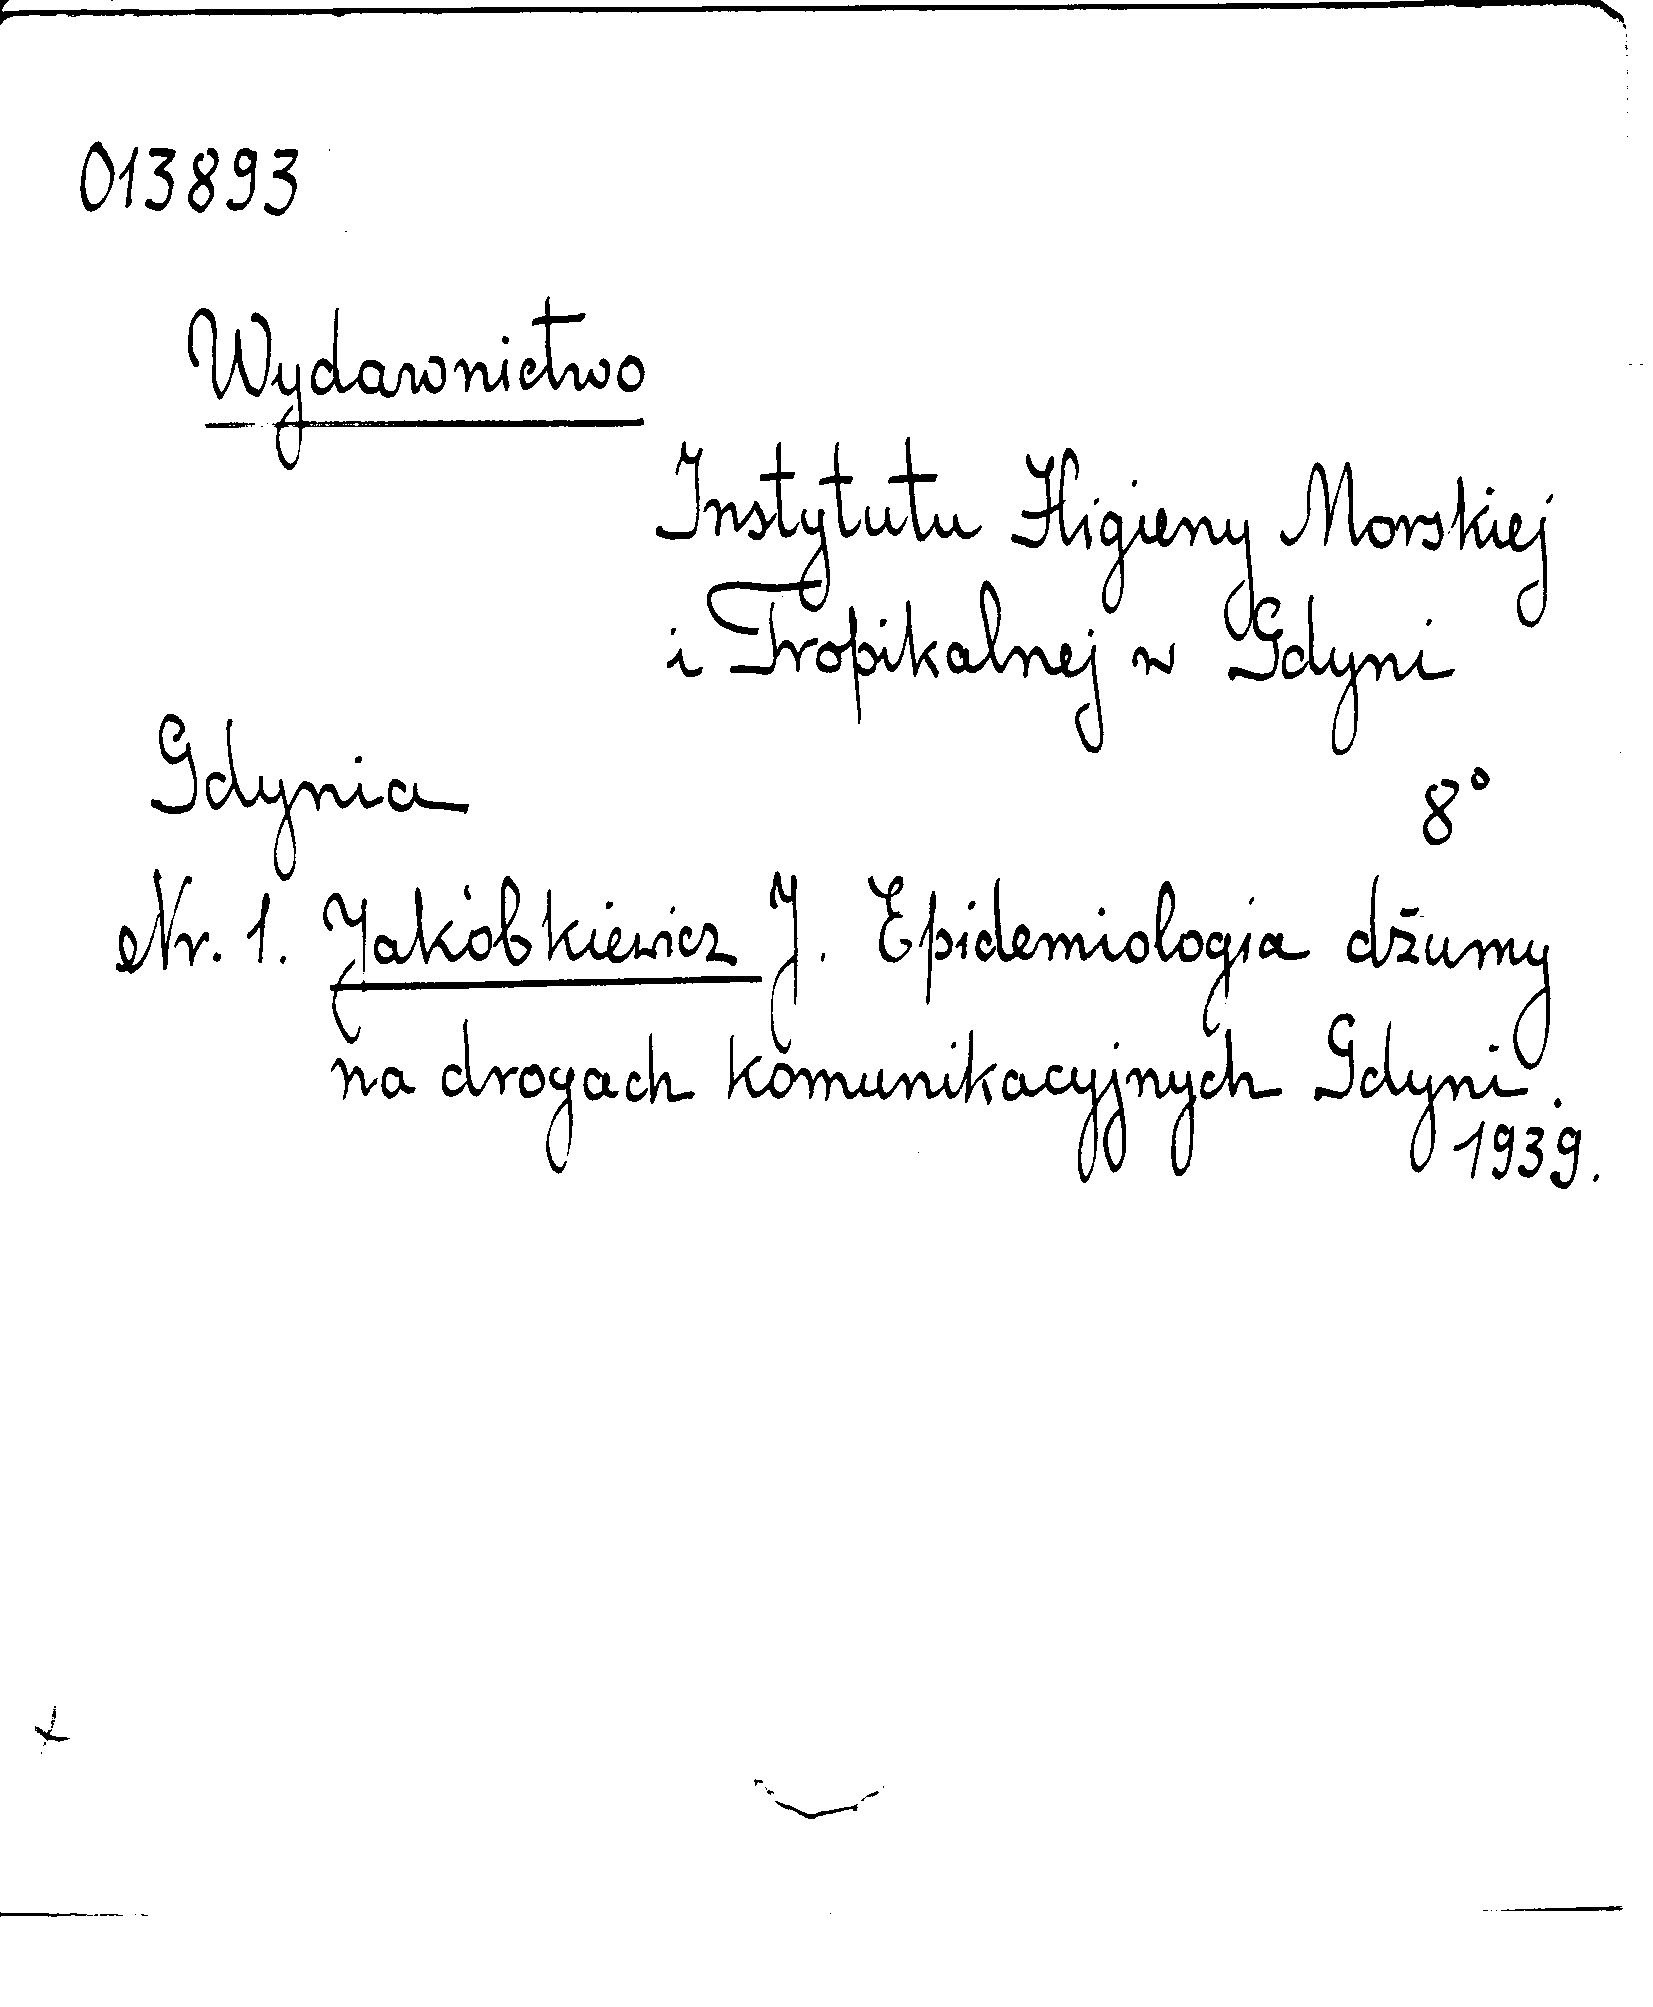 013893
Wydawnictwo
Instytutu Higieny Morskiej
i Tropikalnej w Gdyni
Gdynia
8°
Nr. 1. Jakóbkiewicz J. Epidemiologia dżumy
na drogach komunikacyjnych Gdyni.
1939.